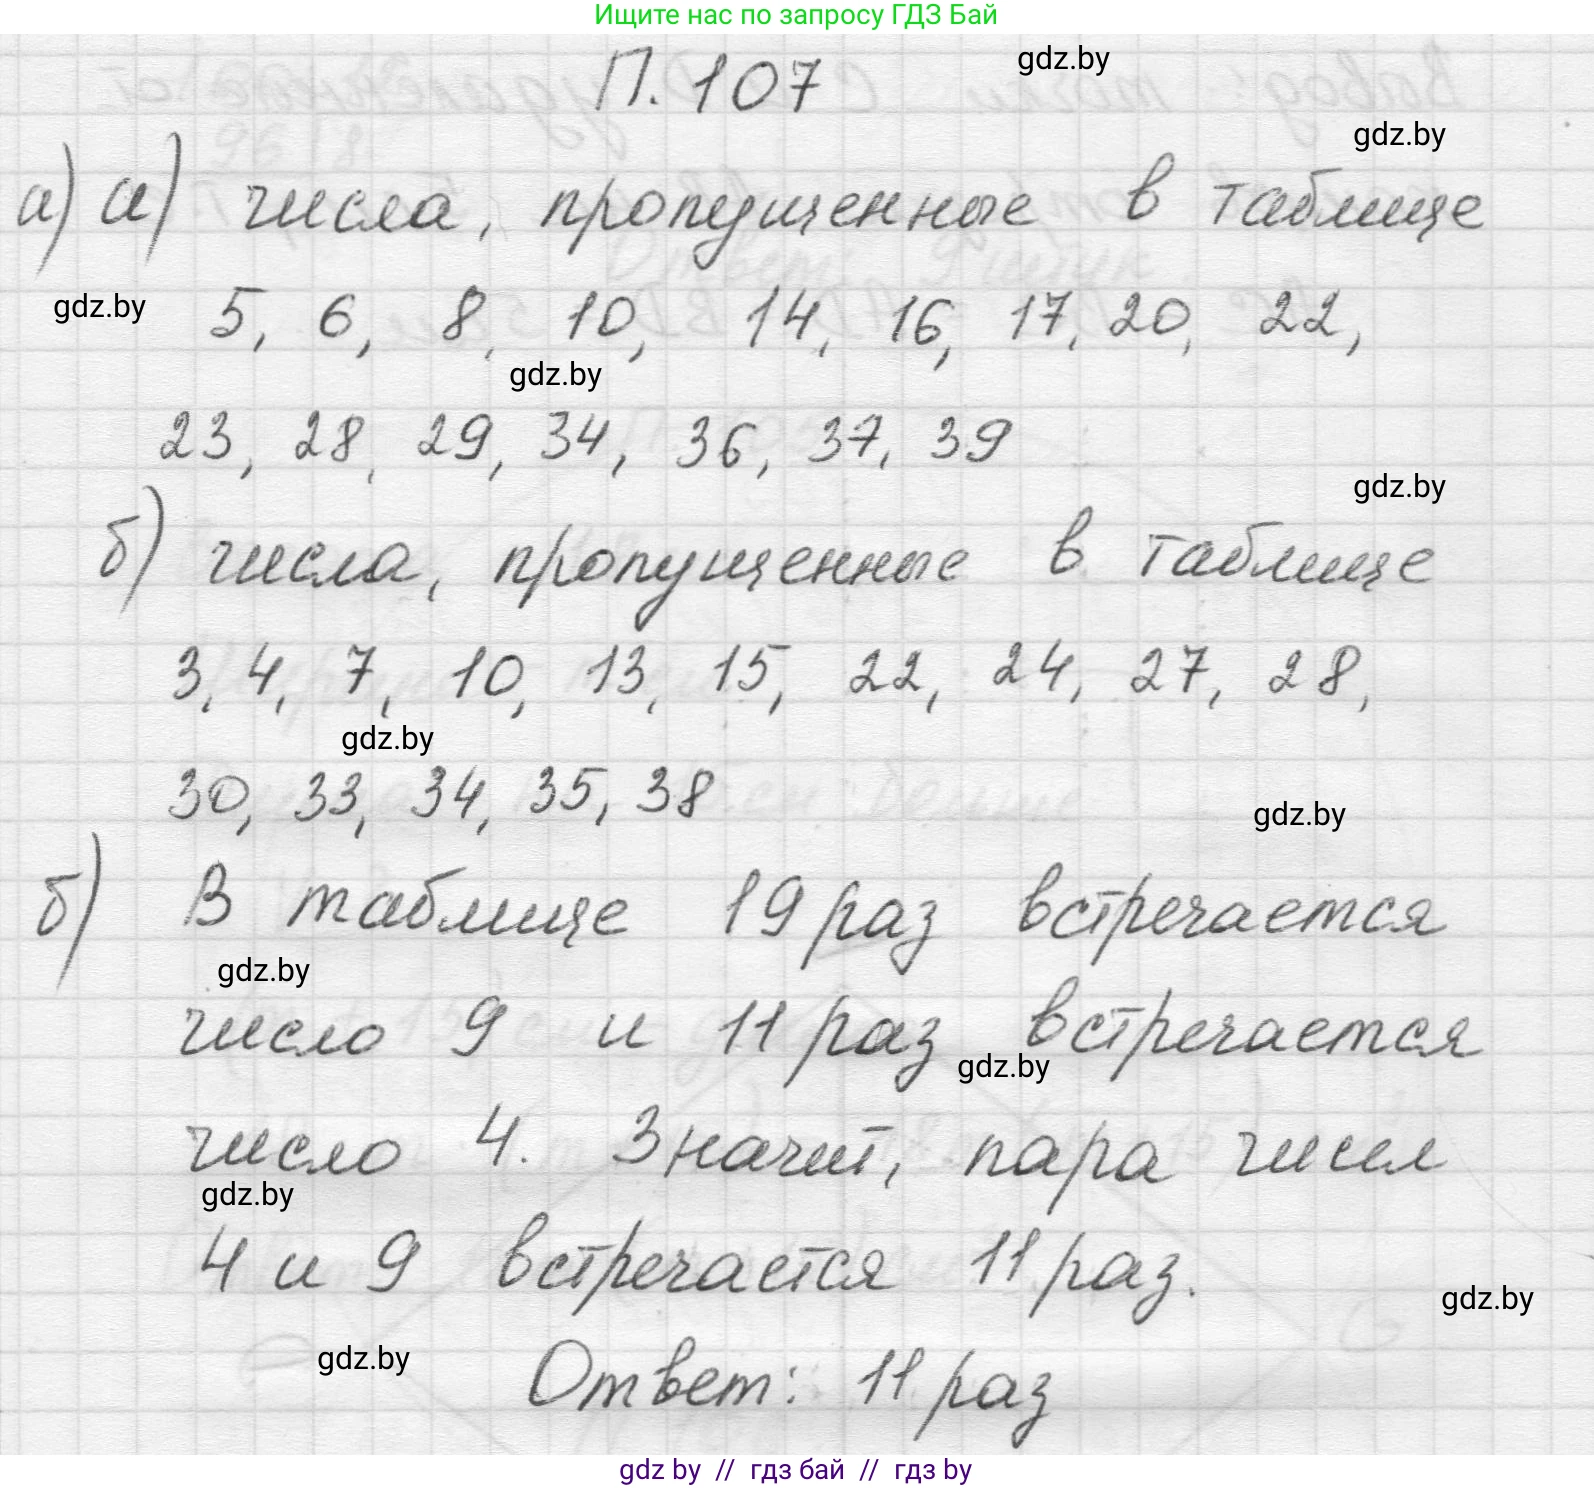 Ищите нас по запросу ГДЗ Бай
П. 107
gdz.by
gdz.by
а) а) числа, пропущенные в таблице
gdz.by
5, 6, 8, 10, 14, 16, 17, 20, 22,
gdz.by
23, 28, 29, 34, 36, 37, 39
gdz.by
б) числа, пропущенные в таблице
3, 4, 7, 10, 13, 15, 22, 24, 27, 28,
gdz.by
30, 33, 34, 35, 38
gdz.by
б) В таблице 19 раз встречается
gdz.by
число 9 и 11 раз встречается
gdz.by
число 4. Значит, пара чисел
gdz.by
4 и 9 встречается 11 раз.
gdz.by
gdz.by
Ответ: 11 раз
gdz by // гдз бай // гдз by